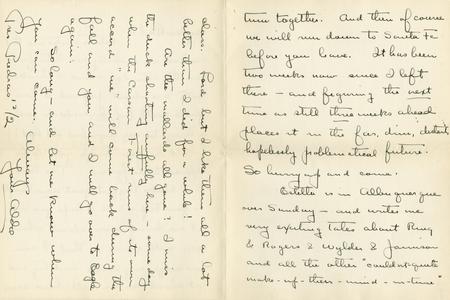 time together. And then of course
we will run down to Santa Fe
before you leave. It has been
two weeks now since I left
there — and figuring the next
time as still three weeks ahead
places it in the far, dim, distant
hopelessly problematical future.
So hurry up and come.
Estella is in Albuquerque
over Sunday — and writes me
very exciting tales about Ring
& Rogers & Wylder & Jamison
and all the other "couldn't quite
make-up-their-mind-in-time"
class. but I like them all a lot
better than I did for a while!
Are the mallards all gone? I miss
the ducks here — some day
when the Carson Forest runs of its own
accord "we" will come back during the
fall and you and I will go over to Eagle
again.
So long — and let me know when
you can come. Always
Yours Aldo
Tres Piedras 12/21